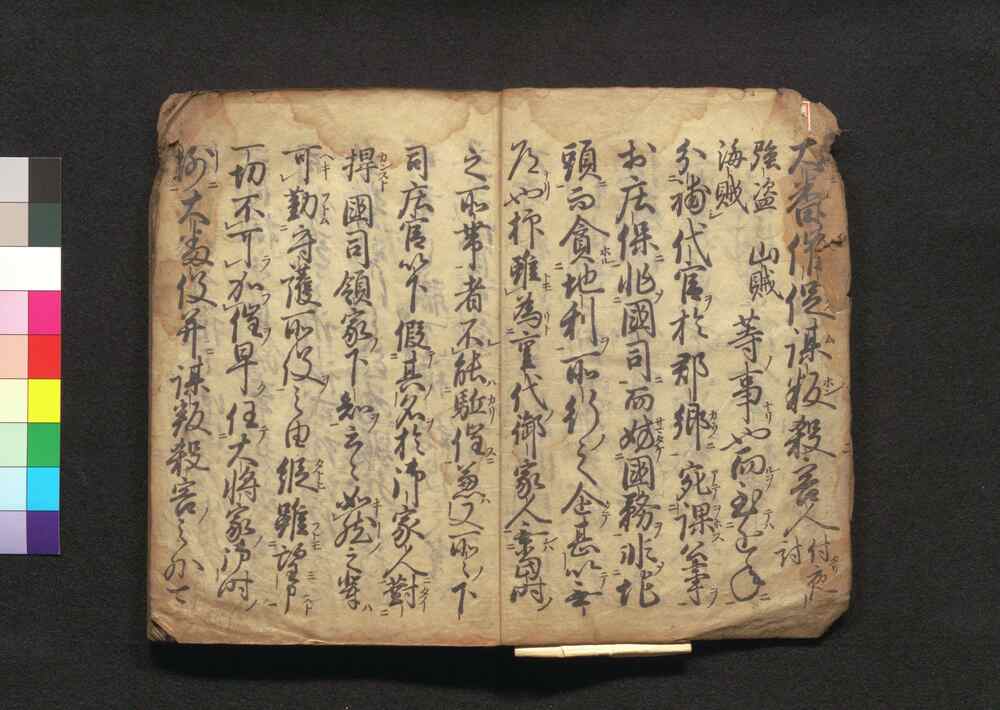 大番催促謀叛殺害人付夜討
強盗山賊海賊等事也而至近年
分補代官於郡郷宛課公事
於庄保非國司而妨國務非地
頭而貪地利所行之企甚以無
道也抑雖為重代御家人無當時
之所帯者不能駈催兼又所々下
司庄官以下假其名於御家人對
捍國司領家下知云々如然之輩
可勤守護所役之由縦雖望申
一切不可加催早任大将家御時
例大番役并謀叛殺害之外可